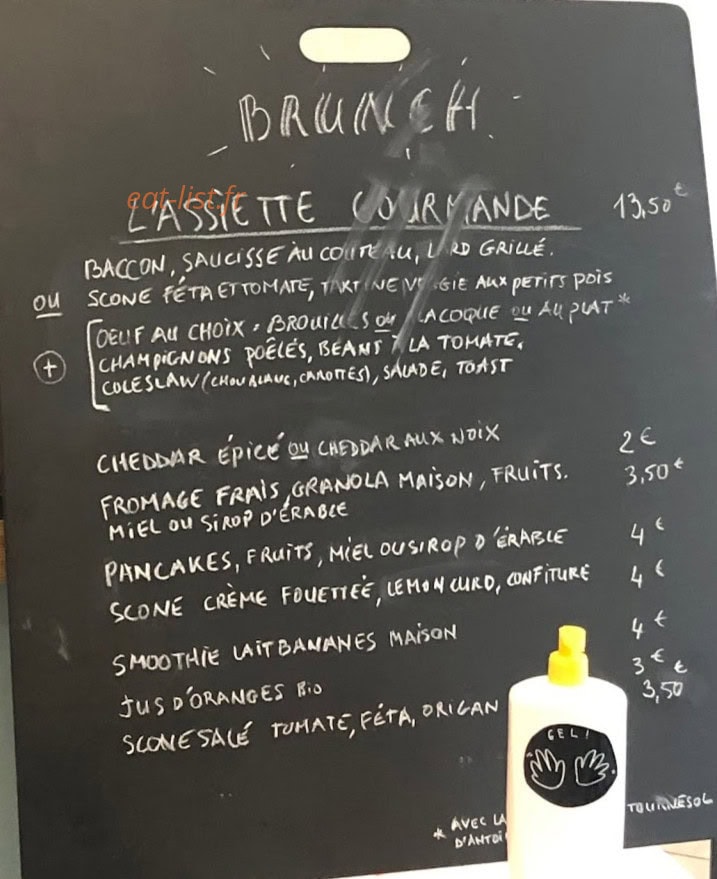 BRUNCH
eat-list.fr
L'ASSIETTE GOURMANDE 13,50€
BACCON, SAUCISSE AU COUTEAU, LARD GRILLÉ.
OU SCONE FÉTA ET TOMATE, TARTINE VEGGIE AUX PETITS POIS
+ OEUF AU CHOIX = BROUILLÉS OU LACOQUE OU AU PLAT*
CHAMPIGNONS POÊLÉS, BEANS À LA TOMATE,
COLESLAW (CHOU BLANC, CAROTTES), SALADE, TOAST
CHEDDAR ÉPICÉ OU CHEDDAR AUX NOIX 2€
FROMAGE FRAIS, GRANOLA MAISON, FRUITS. 3,50€
MIEL OU SIROP D'ÉRABLE
PANCAKES, FRUITS, MIEL OU SIROP D'ÉRABLE 4€
SCONE CRÈME FOUETTÉE, LEMON CURD, CONFITURE 4€
SMOOTHIE LAIT BANANES MAISON 4€
JUS D'ORANGES BIO 3€
SCONE SALÉ TOMATE, FÉTA, ORIGAN 3,50€
GEL!
* AVEC LA TOURNESOL